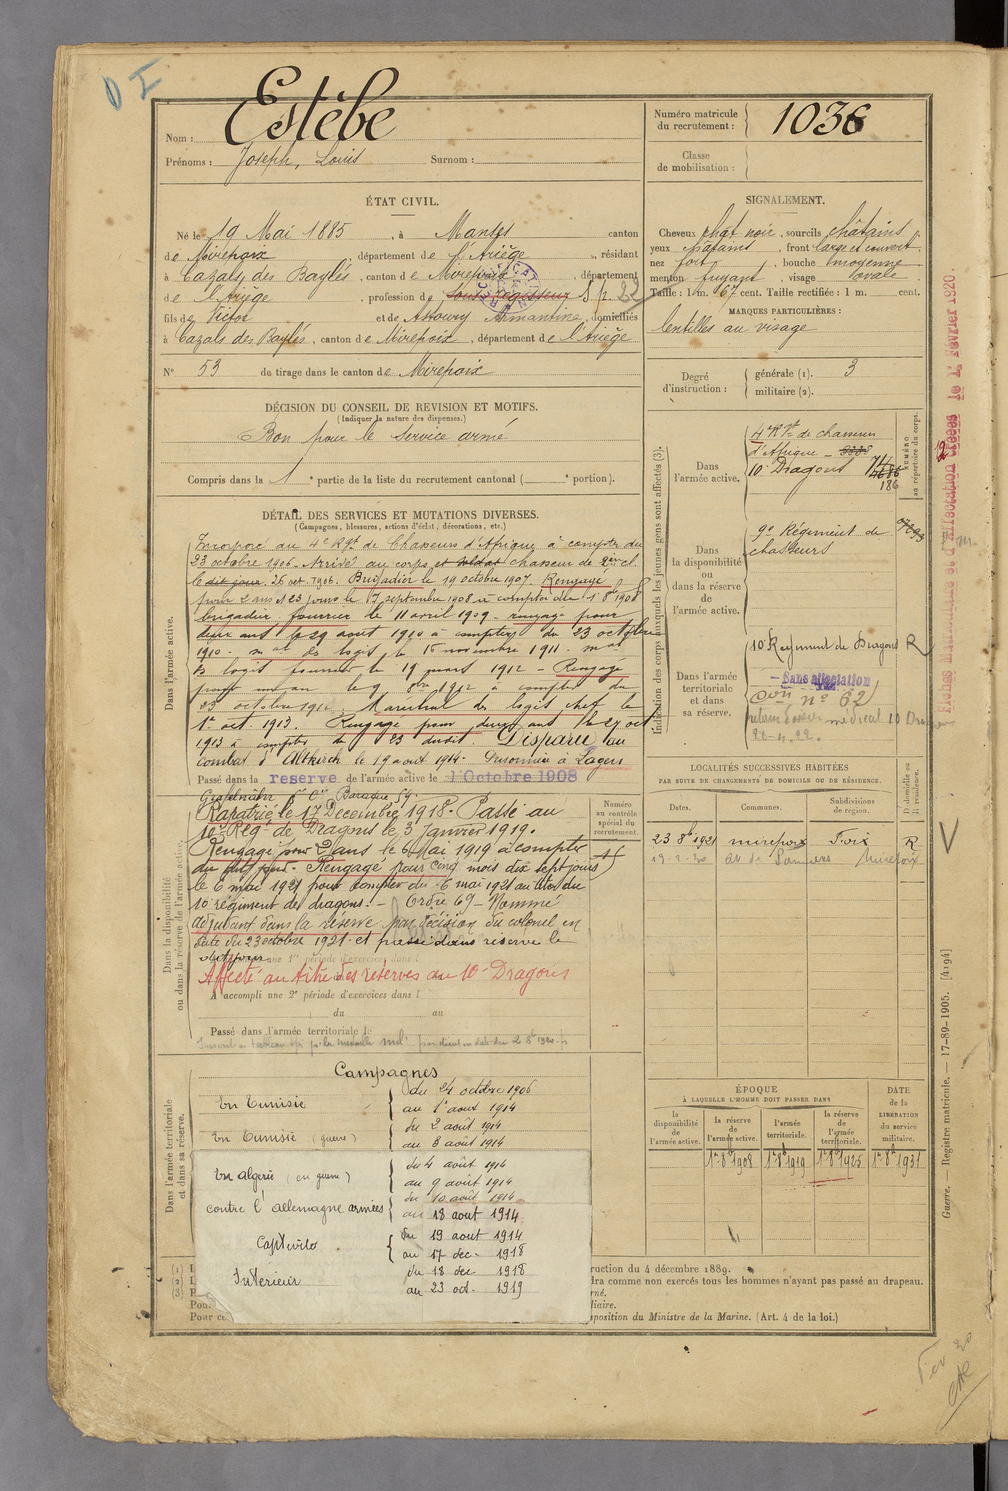 Estèbe
Nom :
Prénoms : Joseph, Louis Surnom :
Numéro matricule du recrutement : 1036
Classe de mobilisation :
ÉTAT CIVIL.
Né le 19 Mai 1885, à Manses canton
de Mirepoix, département de l'Ariège, résidant
à Cazals des Baylès, canton de Mirepoix, département
de l'Ariège, profession de
fils de Victor et de Armantine, domiciliés
à Cazals des Baylès, canton de Mirepoix, département de l'Ariège
N° 53 de tirage dans le canton de Mirepoix
SIGNALEMENT.
Cheveux chat noir, sourcils châtains
yeux châtains, front large et couvert
nez fort, bouche moyenne
menton fuyant, visage ovale
Taille : 1 m. 67 cent. Taille rectifiée : 1 m. cent.
MARQUES PARTICULIÈRES :
lentilles au visage
Degré d'instruction : générale (1). 3
militaire (2).
DÉCISION DU CONSEIL DE REVISION ET MOTIFS.
(Indiquer la nature des dispenses.)
Bon pour le service armé
Compris dans la 1e partie de la liste du recrutement cantonal ( e portion).
DÉTAIL DES SERVICES ET MUTATIONS DIVERSES.
(Campagnes, blessures, actions d'éclat, décorations, etc.)
Dans l'armée active.
Incorporé au 4e Rgt de Chasseurs d'Afrique à compter du
23 octobre 1906. Arrivé au corps et soldat chasseur de 2e cl.
le dit jour. 26 oct. 1906. Brigadier le 19 octobre 1907. Rengagé
pour 2 ans et 23 jours le 17 septembre 1908 à compter du 1er 8bre 1908
brigadier fourrier le 11 avril 1909 - rengagé pour
deux ans le 29 aout 1910 à compter du 23 octobre
1910 - mal des logis le 16 novembre 1911 - mal
des logis fourrier le 19 mars 1912 - Rengagé
pour un an le 9 8bre 1912 à compter du
23 octobre 1912. Maréchal des logis chef le
1er oct 1913. Rengagé pour deux ans le 21 oct
1913 à compter du 23 dudit. Disparu au
combat d'Altkirch le 19 aout 1914. Prisonnier à Lagers
Passé dans la reserve de l'armée active le 1 Octobre 1908
Dans la disponibilité ou dans la réserve de l'armée active.
Baraque 54.
Rapatrié le 17 Decembre 1918. Passé au
10e Rég. de Dragons le 3 Janvier 1919.
Rengagé pour 2 ans le 6 Mai 1919 à compter
du dit jour. Rengagé pour cinq mois dix sept jours
le 6 mai 1921 pour compter du 6 mai 1921 au titre du
10 régiment de dragons. - Ordre 69 - Nommé
adjudant dans la réserve par décision du colonel en
date du 23 octobre 1921 et passé dans réserve le
dit jour
Affecté au titre des réserves au 10e Dragons
A accompli une 2e période d'exercices dans l
du au
Passé dans l'armée territoriale le
Numéro au contrôle spécial du recrutement.
Dans l'armée territoriale et dans sa réserve.
Campagnes
En Tunisie du 24 octobre 1906
au 1er aout 1914
En Tunisie (guerre) du 2 août 1914
au 3 août 1914
En Algérie (en guerre) du 4 août 1914
au 9 août 1914
contre l'allemagne armées du 10 août 1914
au 18 aout 1914
Captivité du 19 aout 1914
au 17 dec. 1918
Intérieur du 18 dec. 1918
au 23 oct. 1919
Indication des corps auxquels les jeunes gens sont affectés (3).
NUMÉRO au répertoire du corps.
Dans l'armée active.
4 Rgt de chasseurs
d'Afrique - 3338
10e Dragons
186
Dans la disponibilité ou dans la réserve de l'armée active.
9e Régiment de
chasseurs
Dans l'armée territoriale et dans sa réserve.
10 Regiment de Dragons R
Sans affectation
n° 62
LOCALITÉS SUCCESSIVES HABITÉES
PAR SUITE DE CHANGEMENTS DE DOMICILE OU DE RÉSIDENCE.
Dates. Communes. Subdivisions de région. D domicile ou R résidence.
23 8bre 1921 mirepoix Foix R
19-2-30 Pamiers Mirepoix
ÉPOQUE
À LAQUELLE L'HOMME DOIT PASSER DANS
la disponibilité de l'armée active. la réserve de l'armée active. l'armée territoriale. la réserve de l'armée territoriale.
DATE de la LIBÉRATION du service militaire.
1er 8bre 1908 1er 8bre 1919 1er 8bre 1925 1er 8bre 1931
ruction du 4 décembre 1889.
dra comme non exercés tous les hommes n'ayant pas passé au drapeau.
rné.
liaire.
sposition du Ministre de la Marine. (Art. 4 de la loi.)
(1) I
(2) I
(3) P
Pou
Pour c
Guerre. — Registre matricule. — 17-89-1905. [4194]
le 1er Février 1920.